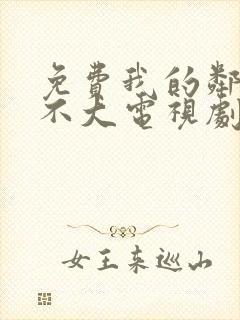 免費我的鄰
不大電視劇
女王来巡山